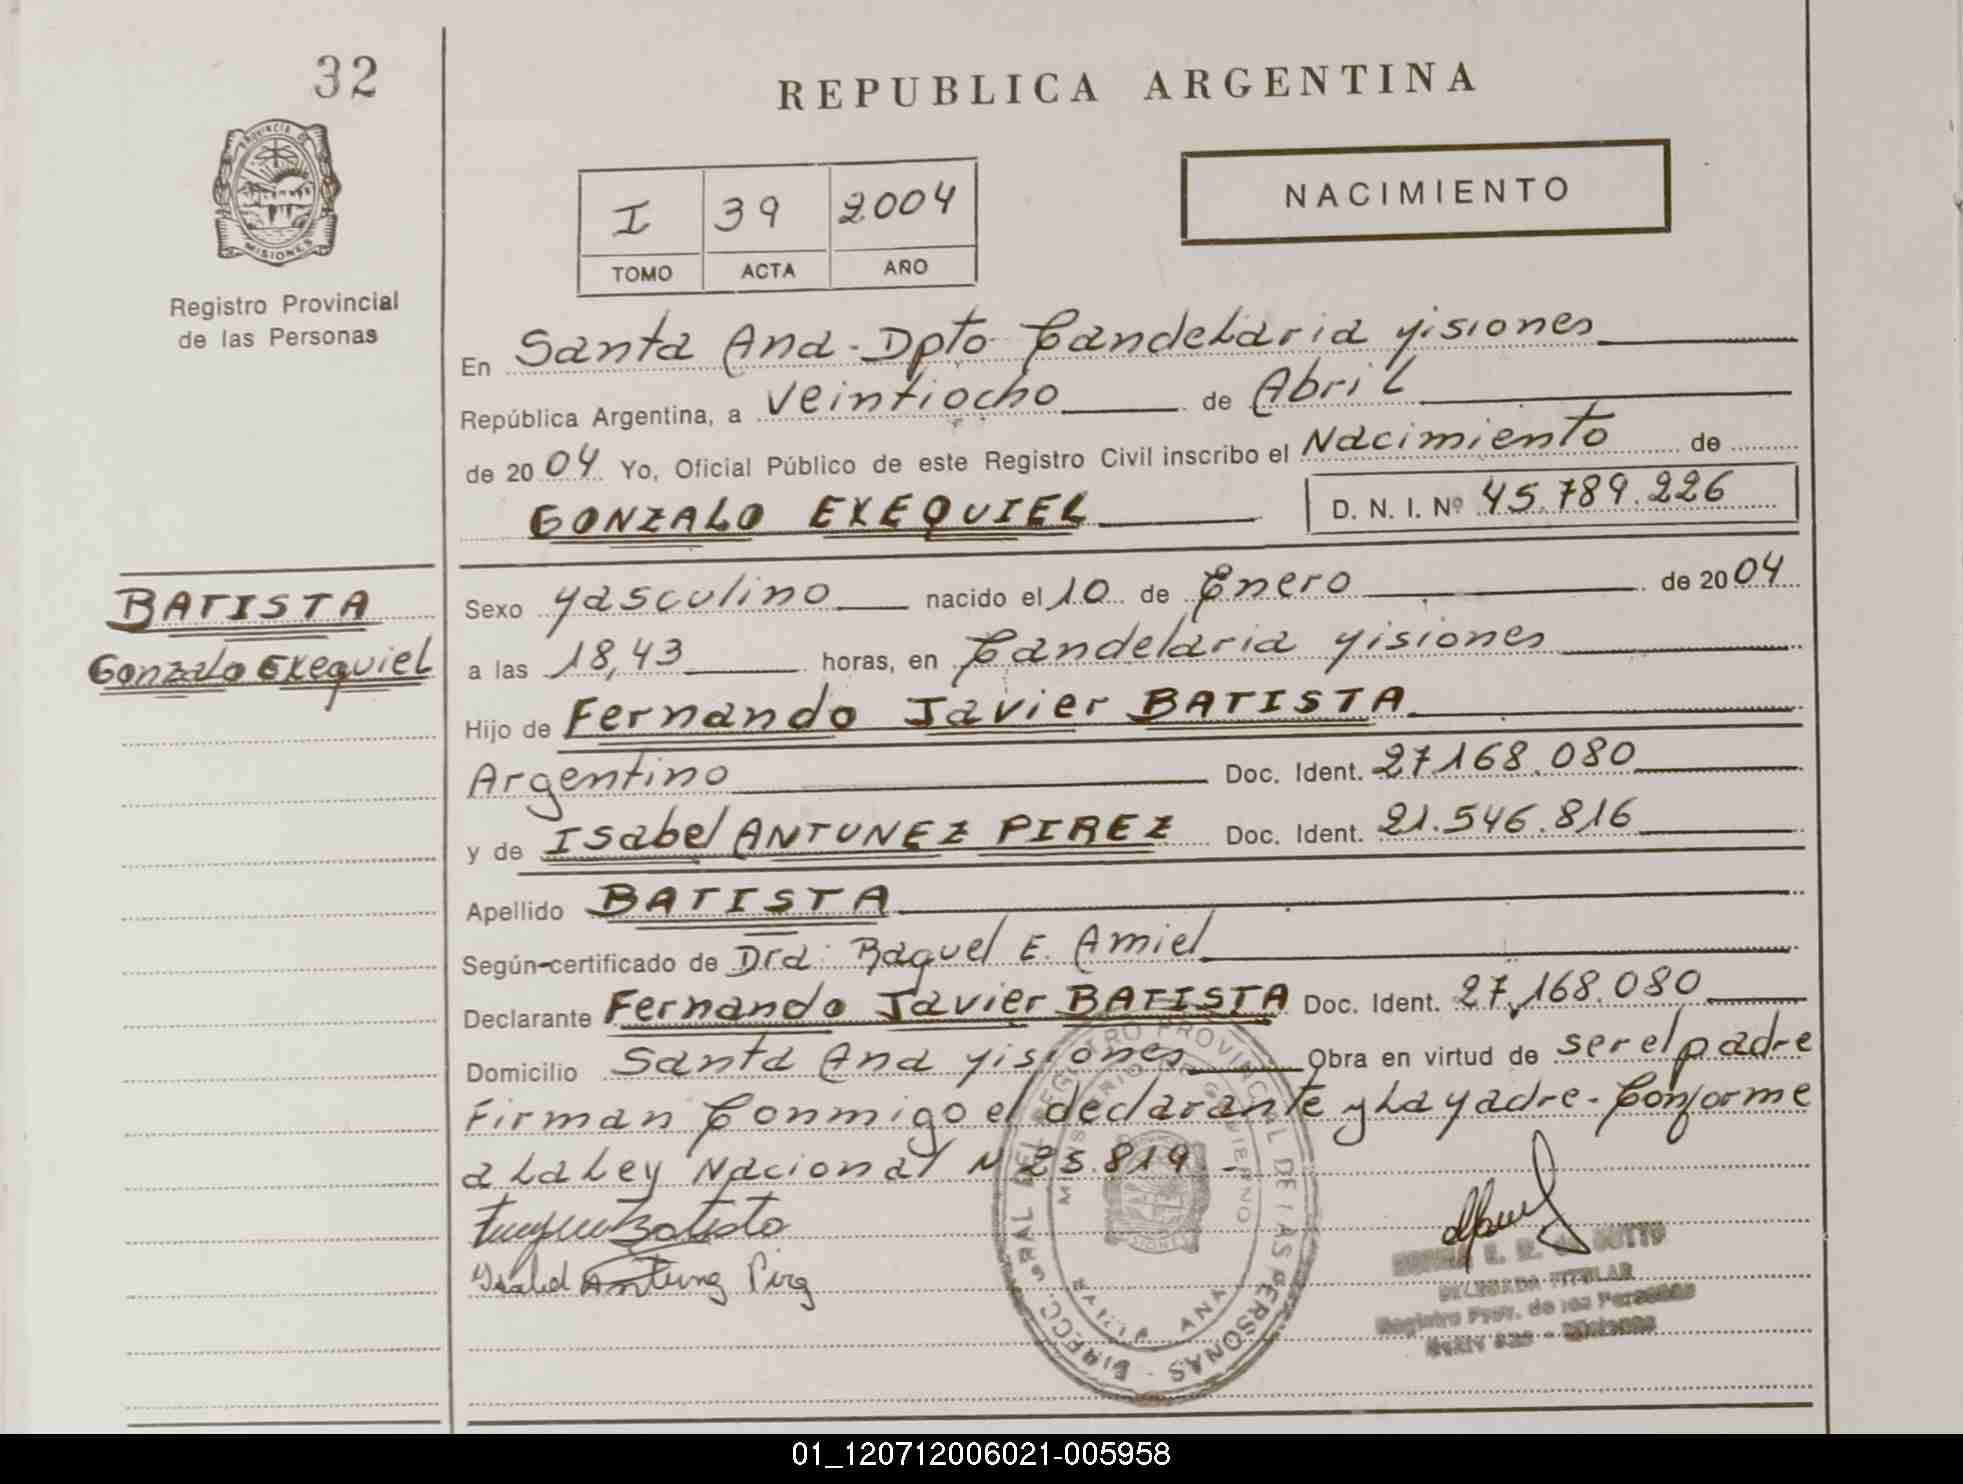 32
REPUBLICA ARGENTINA
PROVINCIA DE
MISIONES
Registro Provincial
de las Personas
NACIMIENTO
I 39 2004
TOMO ACTA AÑO
En Santa Ana - Dpto Candelaria Misiones
República Argentina, a Veintiocho de Abril
de 2004 Yo, Oficial Público de este Registro Civil inscribo el Nacimiento de
GONZALO EXEQUIEL D. N. I. Nº 45.789.226
BATISTA
Gonzalo Exequiel
Sexo Masculino nacido el 10 de Enero de 2004
a las 18,43 horas, en Candelaria Misiones
Hijo de Fernando Javier BATISTA
Argentino Doc. Ident. 27.168.080
y de Isabel ANTUNEZ PIREZ Doc. Ident. 21.546.816
Apellido BATISTA
Según certificado de Dra. Raquel E. Amiel
Declarante Fernando Javier BATISTA Doc. Ident. 27.168.080
Domicilio Santa Ana Misiones Obra en virtud de ser el padre
Firman Conmigo el declarante y La Madre - Conforme
a La Ley Nacional N 25.819 -
Batista
Isabel Antunez Pirez
DIRECC. GRAL DEL REGISTRO PROVINCIAL DE LAS PERSONAS
MINISTERIO DE GOBIERNO
SANTA ANA
DELEGADA TITULAR
Registro Prov. de las Personas
Santa Ana - Misiones
01_120712006021-005958